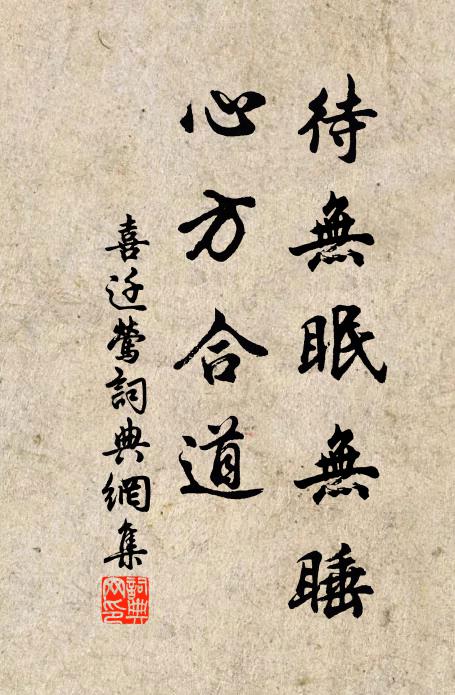 待無眠無睡
心方合道
喜迁鶯詞典網集
詞典網印